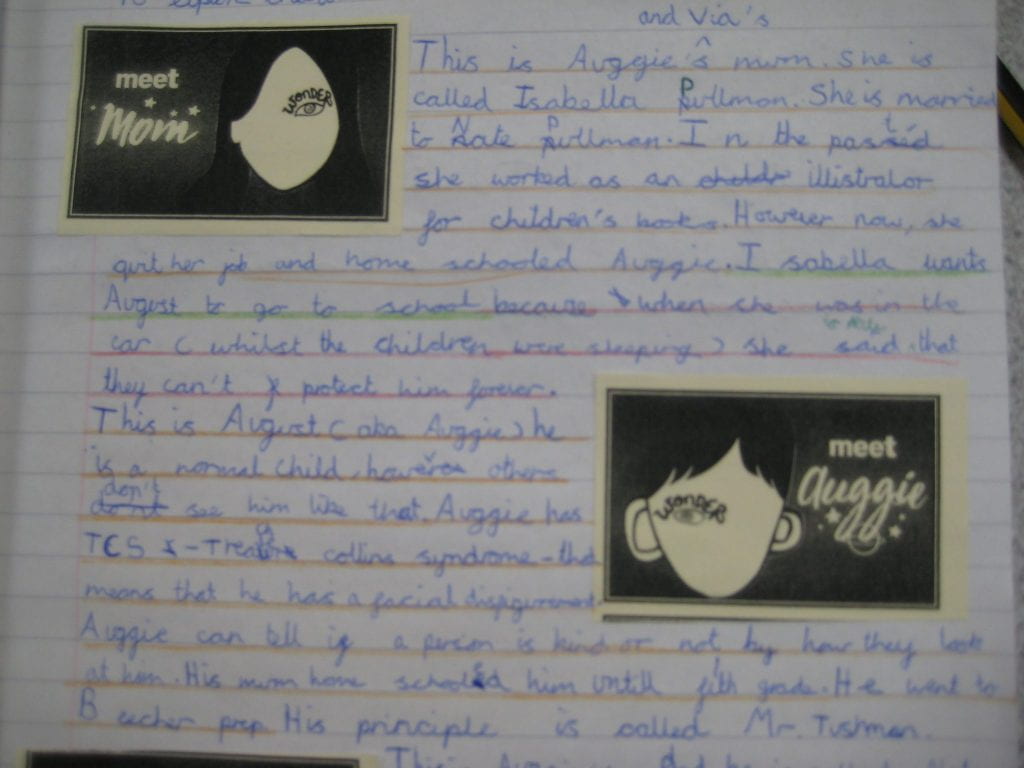 and Via's
This is Auggie's mum. She is
called Isabella Pullman. She is married
to Nate Pullman. I n the past
she worked as an illistrator
for children's books. However now, she
quit her job and home schooled Auggie. I sabella wants
August to go to school because when she was in the
car ( whilst the children were sleeping ) she said that
they can't protect him forever.
This is August ( aka Auggie ) he
is a normal child, however others
don't see him like that. Auggie has
TCS collins syndrome - tha
means that he has a facial disfigurement.
Auggie can tell if a person is kind or not by how they look
at him. His mum home schooled him untill fith grade. He went to
B eecher prep His principle is called Mr. Tushman.
meet
Mom
WONDER
meet
Auggie
WONDER